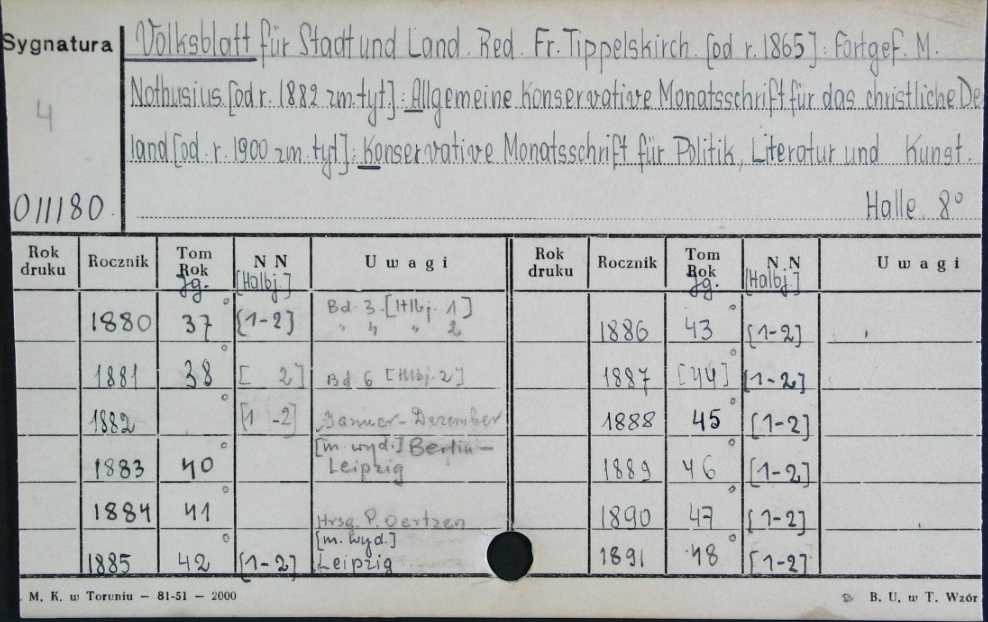 Sygnatura
Volksblatt für Stadt und Land. Red. Fr. Tippelskirch. [od r. 1865]: Fortges. M.
Nathusius. [od r. 1882 zm. tyt.]: Allgemeine Konservative Monatsschrift für das christliche De
4
land [od. r. 1900 zm. tyt]: Konservative Monatsschrift für Politik, Literatur und Kunst.
011180. Halle. 8°
Rok druku Rocznik Tom Rok Jg. N N [Halbj.] Uwagi Rok druku Rocznik Tom Rok Jg. N N [Halbj.] Uwagi
1880 37° [1-2] Bd 3. [Hlbj. 1] 1886 43° [1-2]
" 4 " 2
1881 38° [ 2] Bd 6 [Hlbj. 2] 1887 [44]° [1-2]
1882 ° [1 -2] Januar-Dezember 1888 45° [1-2]
1883 40° [m. wyd.] Berlin - Leipzig 1889 46° [1-2]
1884 41° Hrsg. P. Oertzen 1890 47° [1-2]
1885 42° [1-2] [m. wyd.] Leipzig 1891 48° [1-2]
. M. K. w Toruniu — 81-51 — 2000 B. U. w T. Wzór